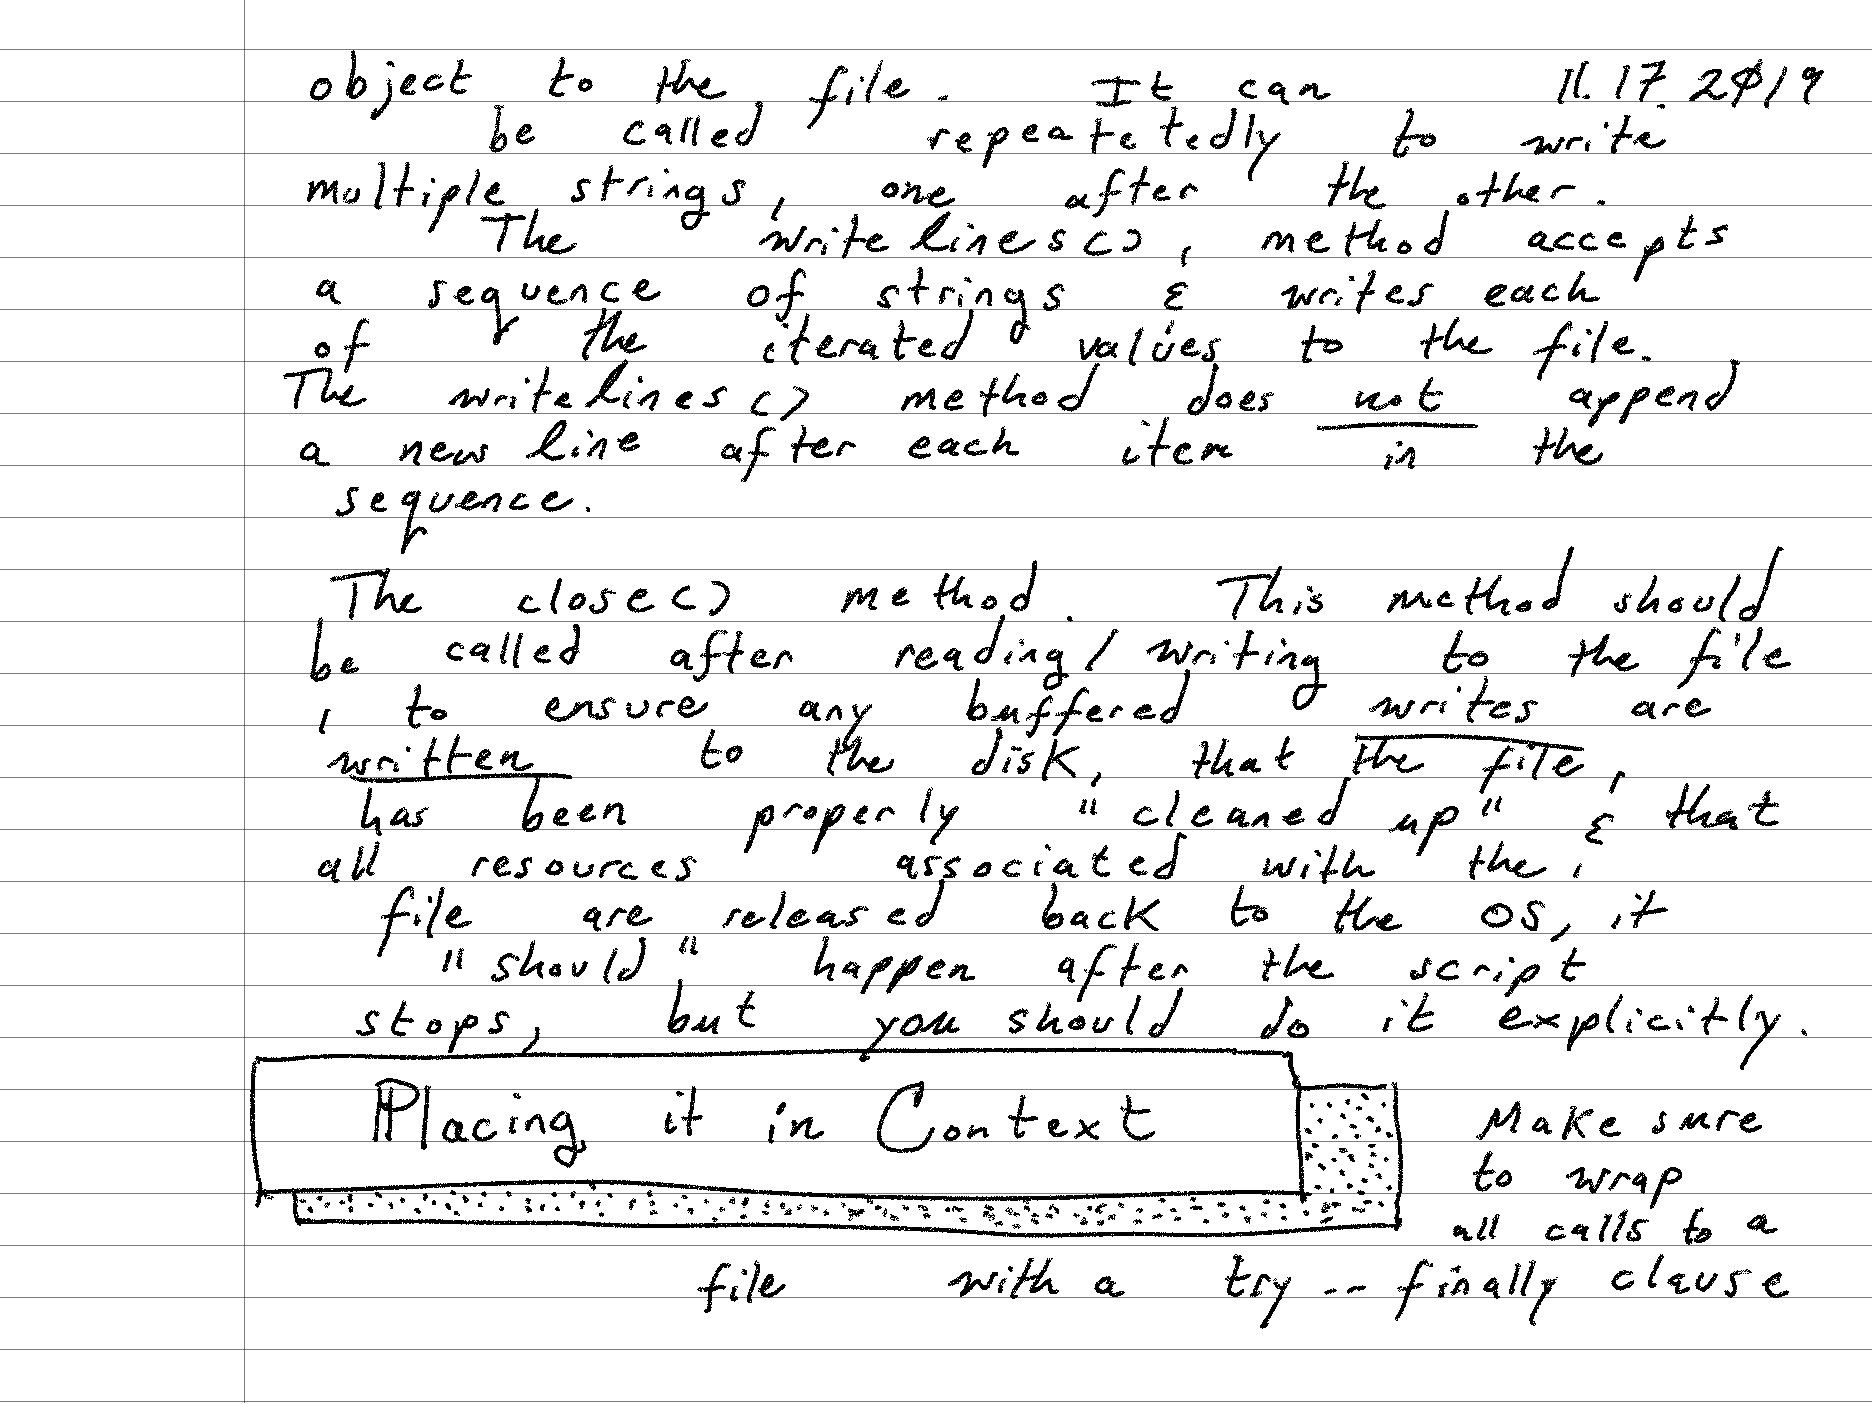 object to the file. It can 11.17.2019
be called repeatetedly to write
multiple strings, one after the other.
The writelines(), method accepts
a sequence of strings & writes each
of the iterated values to the file.
The writelines() method does not append
a new line after each item in the
sequence.
The close() method. This method should
be called after reading/writing to the file
, to ensure any buffered writes are
written to the disk, that the file,
has been properly "cleaned up" & that
all resources associated with the,
file are released back to the OS, it
"should" happen after the script
stops, but you should do it explicitly.
Placing it in Context
Make sure
to wrap
all calls to a
file with a try -- finally clause